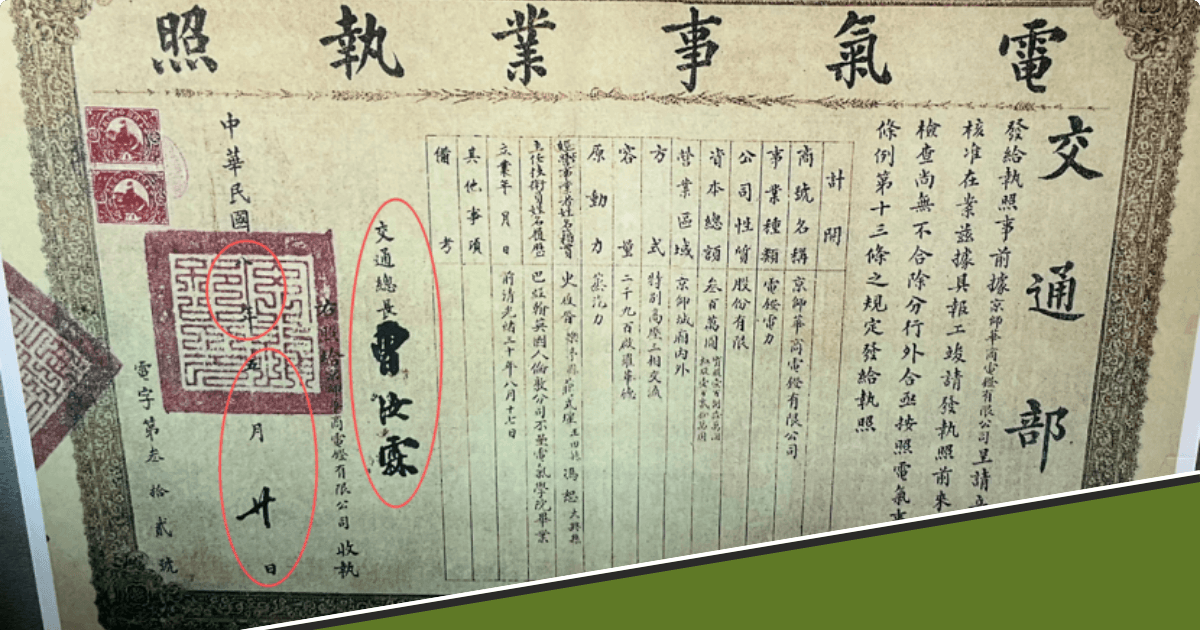 電氣事業執照
交通部
發給執照事前據京師華商電燈有限公司呈請
核准在案茲據具報工竣請發執照前來
檢查尚無不合除分行外合亟按照電氣事
條例第十三條之規定發給執照
計開
商號名稱 京師華商電燈有限公司
事業種類 電燈電力
公司性質 股份有限
資本總額 叁百萬圓
營業區域 京師城廂內外
方式 特別高壓三相交流
容量 二千九百啟羅華德
原動力 蒸汽力
立業年月日 前清光緒三十年八月十七日
其他事項
備考
交通總長曹汝霖
商電燈有限公司 收執
中華民國八年五月廿日
電字第叁拾貳號